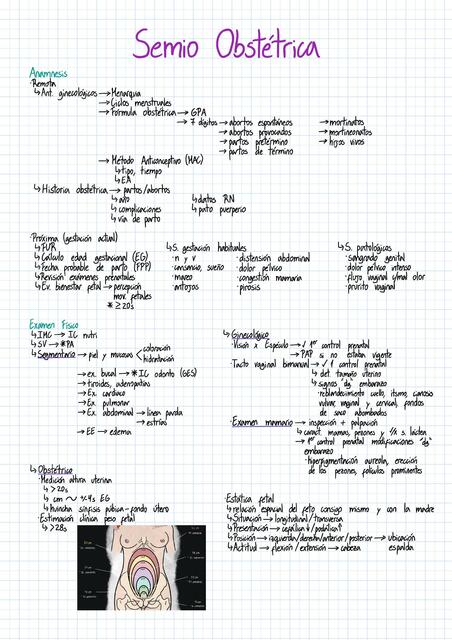 Semio Obstétrica
Anamnesis
·Remota
↳Ant. ginecológicos → Menarquia
→ Ciclos menstruales
→ Fórmula obstétrica → GPA
→ 7 dígitos → abortos espontáneos → mortinatos
→ abortos provocados → mortineonatos
→ partos pretérmino → hijos vivos
→ partos de término
→ Método Anticonceptivo (MAC)
↳tipo, tiempo
↳EA
↳Historia obstétrica → partos/abortos
↳año ↳datos RN
↳complicaciones ↳pato puerperio
↳vía de parto
·Próxima (gestación actual)
↳FUR
↳Cálculo edad gestacional (EG)
↳Fecha probable de parto (FPP)
↳Revisión exámenes prenatales
↳Ev. bienestar fetal → percepción
mov. fetales
* ≥20s
↳S. gestación habituales
· n y v · distensión abdominal
· cansancio, sueño · dolor pélvico
· mareo · congestión mamaria
· antojos · pirosis
↳S. patológicos
· sangrado genital
· dolor pélvico intenso
· flujo vaginal c/mal olor
· prurito vaginal
Examen Físico
↳IMC → IC nutri
↳SV → *PA
↳Segmentario → piel y mucosas coloración
hidratación
→ ex. bucal → * IC odonto (GES)
→ tiroides, adenopatías
→ Ex. cardiaco
→ Ex. pulmonar
→ Ex. abdominal → línea parda
→ estrías
→ EE → edema
↳Ginecológico
·Visión x Espéculo → ✓ 1er control prenatal
→ PAP si no estaba vigente
·Tacto vaginal bimanual → ✓ 1 control prenatal
↳ det. tamaño uterino
↳ signos "dg" embarazo
·reblandecimiento cuello, itsmo, cianosis
vulvar, vaginal y cervical, fondos
de saco abombados
·Examen mamario → inspección + palpación
↳ caract. mamas, pezones y lacten
→ 1er control prenatal modificaciones "dg"
embarazo
·hiperpigmentación aureola, erección
de los pezones, folículos prominentes
↳Obstétrico
·Medición altura uterina
↳ >20s
↳ cm ~ EG
↳ huincha sínfisis púbica-fondo útero
·Estimación clínica peso fetal
↳ >28s
·Estática fetal
↳ relación espacial del feto consigo mismo y con la madre
↳ Situación → longitudinal/transversa
↳ Presentación → cefálica↓/podálica↑
↳ Posición → izquierda/derecha/anterior/posterior → ubicación
espalda
↳ Actitud → flexión/extensión → cabeza